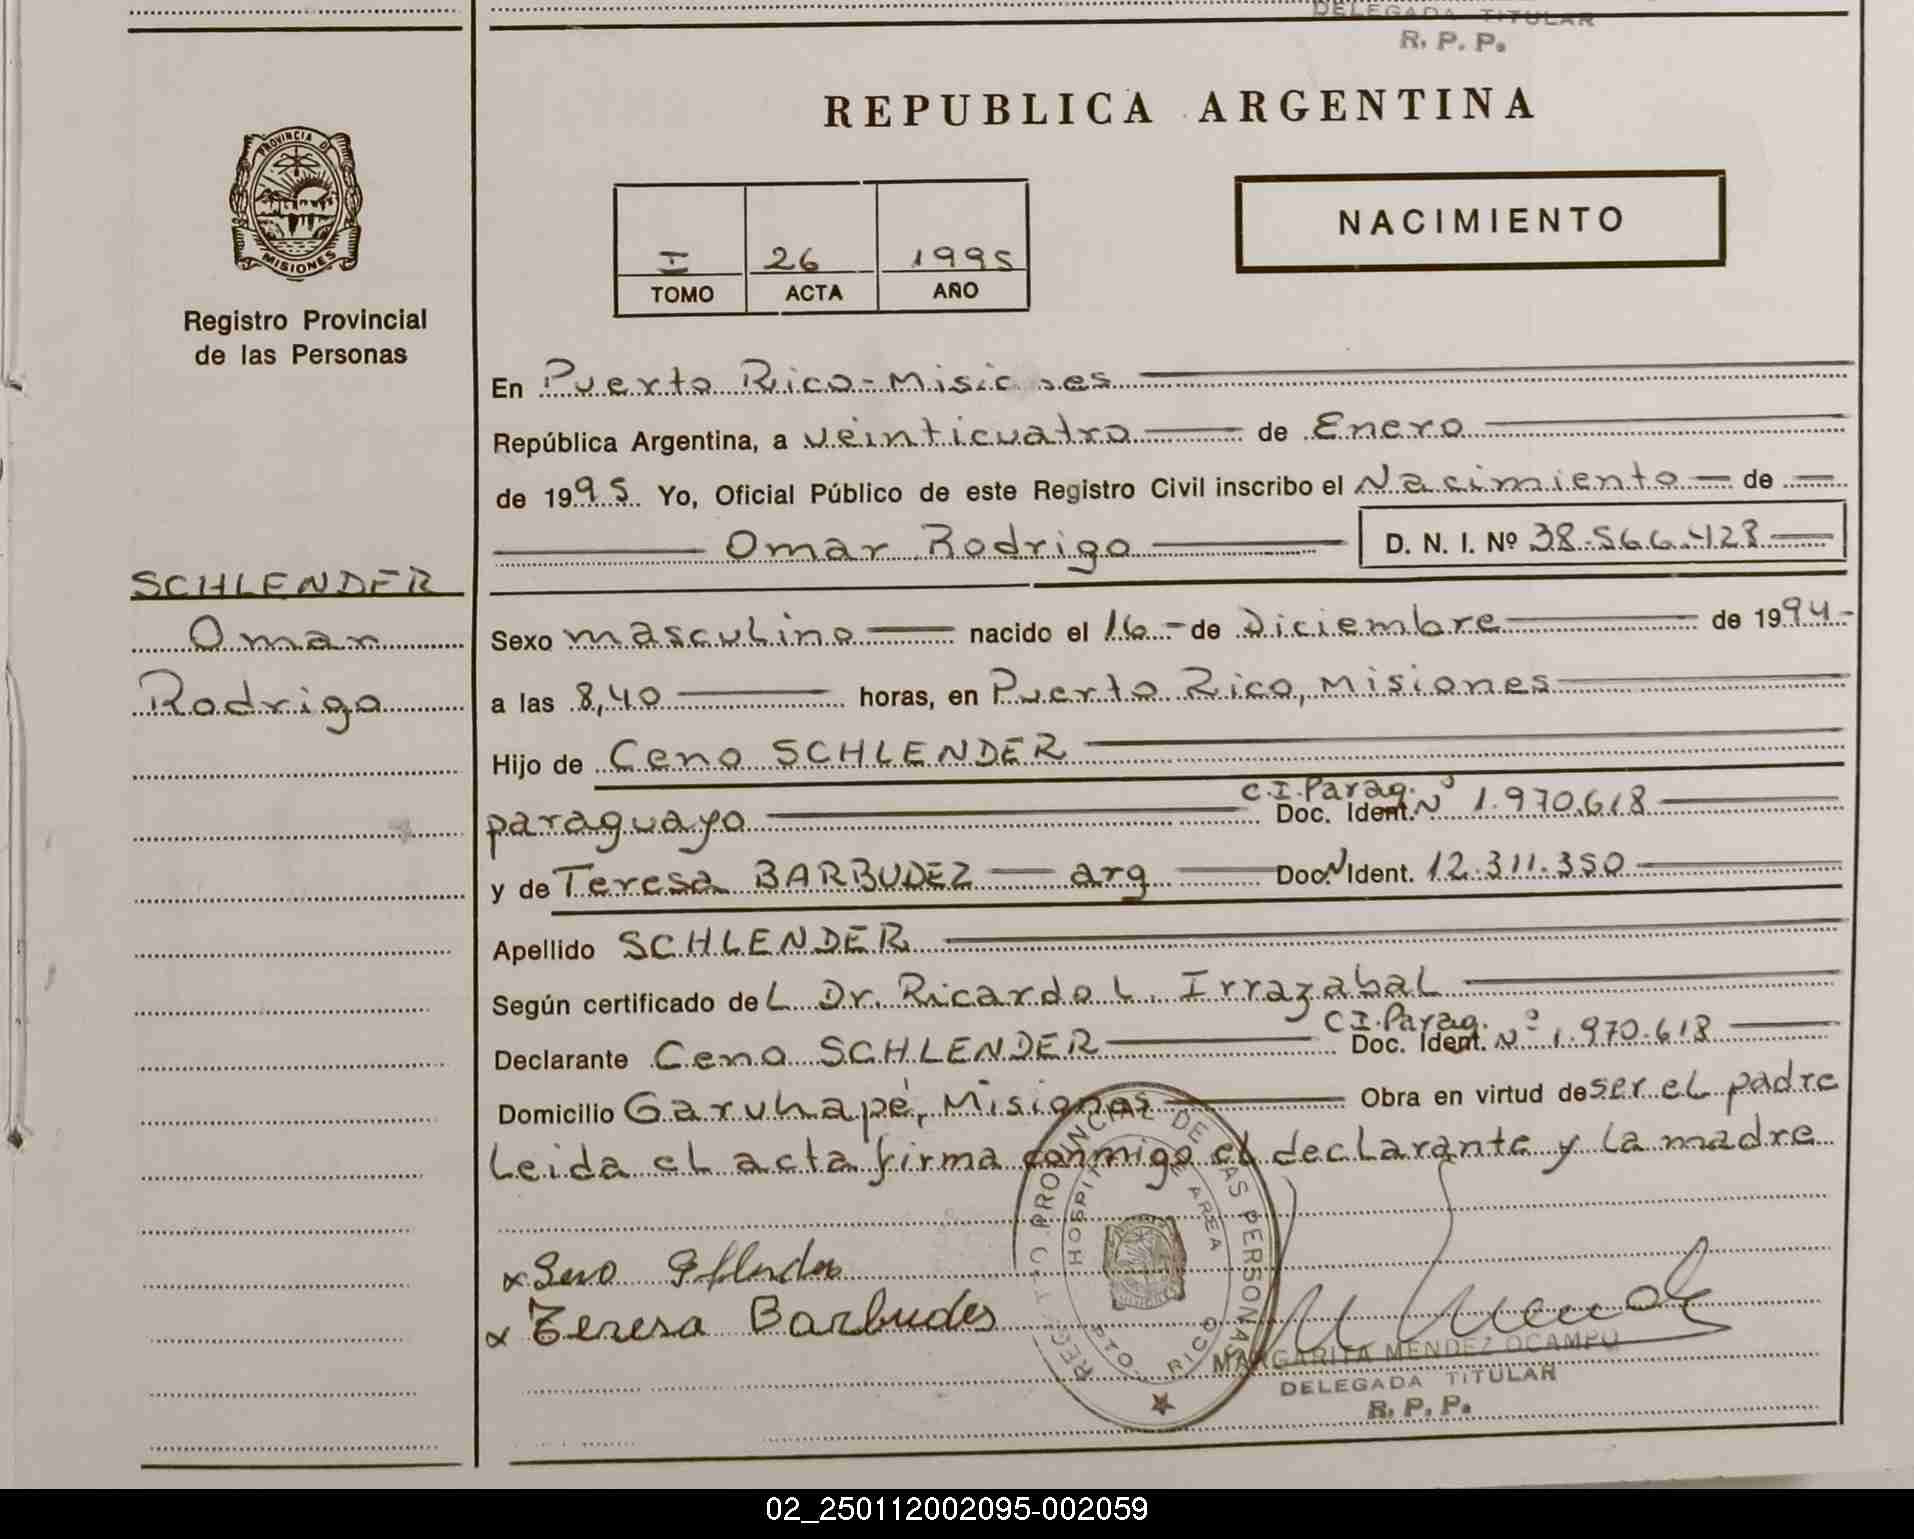 DELEGADA TITULAR
R. P. P.
REPUBLICA ARGENTINA
PROVINCIA DE
MISIONES
Registro Provincial
de las Personas
I 26 1995
TOMO ACTA AÑO
NACIMIENTO
En Puerto Rico-Misiones
República Argentina, a veinticuatro de Enero
de 1995. Yo, Oficial Público de este Registro Civil inscribo el Nacimiento de
Omar Rodrigo D. N. I. Nº 38.566.428
SCHLENDER
Omar
Rodrigo
Sexo masculino nacido el 16 de Diciembre de 1994
a las 8,40 horas, en Puerto Rico, Misiones
Hijo de Ceno SCHLENDER
C.I. Parag.
paraguayo Doc. Ident. Nº 1.970.618
y de Teresa BARBUDEZ arg Doc. N Ident. 12.311.350
Apellido SCHLENDER
Según certificado del Dr. Ricardo L. Irrazabal
C I. Parag.
Declarante Ceno SCHLENDER Doc. Ident. Nº 1.970.618
Domicilio Garuhapé, Misiones Obra en virtud de ser el padre
Leida el acta firma conmigo el declarante y la madre
x Seno
x Teresa Barbudes
REGISTRO PROVINCIAL DE LAS PERSONAS
HOSPITAL DE AREA
PTO. RICO
MARGARITA MENDEZ OCAMPO
DELEGADA TITULAR
R. P. P.
02_250112002095-002059